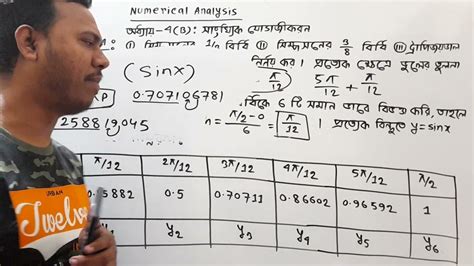 Numerical Analysis
অধ্যায়-4(B): সাংখ্যিক যোগজীকরণ
1/3 বিধি (ii) সিম্পসনের 3/8 বিধি (iii) ট্রাপিজয়ডাল
নির্ণয় কর। প্রত্যেক ক্ষেত্রে ভুলের তুলনা
(sinx)
π/12
5π/12 + π/12
0.707106781
কে 6 টি সমান ভাগে বিভক্ত করি, তাহলে
258819045
n = π/2-0/6 = π/12 । প্রত্যেক বিন্দুতে y=sinx
π/12 2π/12 3π/12 4π/12 5π/12 π/2
5882 0.5 0.70711 0.86602 0.96592 1
y2 y3 y4 y5 y6
URBAN
Twelve